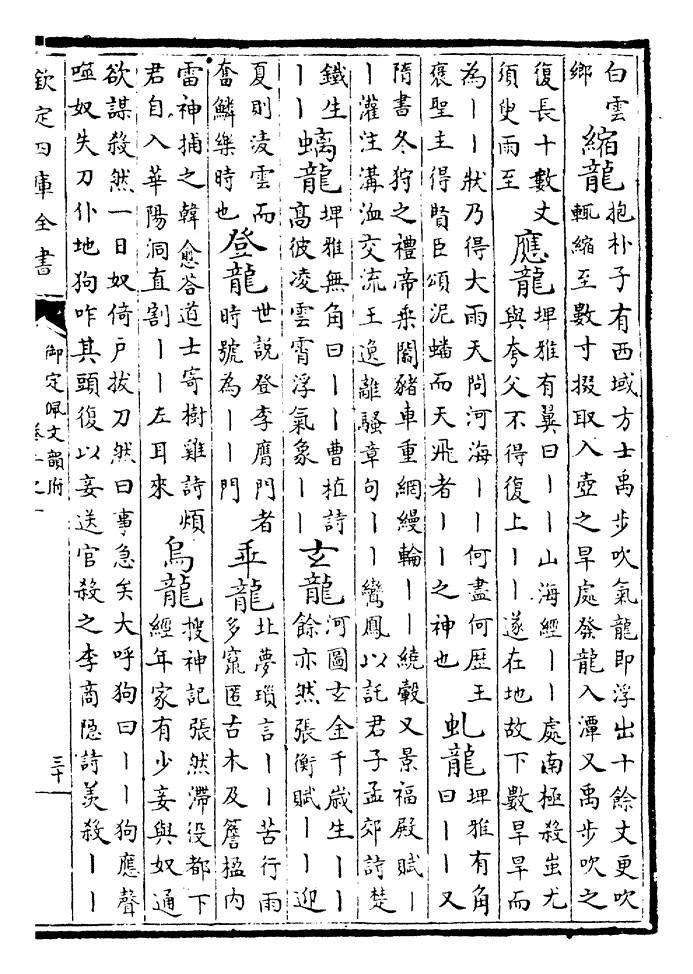 白雲
鄉
縮龍
抱朴子有西域方士禹步吹氣龍即浮出十餘丈更吹
輒縮至數寸掇取入壺之旱處發龍入潭又禹步吹之
復長十數丈
須臾雨至
應龍
埤雅有翼曰丨丨山海經丨丨處南極殺蚩尤
與夸父不得復上丨丨遂在地故下數旱旱而
為丨丨狀乃得大雨天問河海丨丨何盡何歴王
褒聖主得賢臣頌泥蟠而天飛者丨丨之神也
虬龍
埤雅有角
曰丨丨又
隋書冬狩之禮帝乗闟豬車重網縵輪丨丨繞轂又景福殿賦丨
丨灌注溝洫交流王逸離騷章句丨丨鸞鳳以託君子孟郊詩楚
鐵生
丨丨
螭龍
埤雅無角曰丨丨曹植詩
高彼凌雲霄浮氣象丨丨
玄龍
河圖玄金千歳生丨丨
餘亦然張衡賦丨丨迎
夏則淩雲而
奮鱗樂時也
登龍
世說登李膺門者
時號為丨丨門
乗龍
北夢瑣言丨丨苦行雨
多竄匿古木及簷楹内
雷神捕之韓愈荅道士寄樹雞詩煩
君自入華陽洞直割丨丨左耳來
烏龍
搜神記張然滯役都下
經年家有少妾與奴通
欲謀殺然一日奴倚户拔刀然曰事急矣大呼狗曰丨丨狗應聲
噬奴失刀仆地狗咋其頭復以妾送官殺之李商隠詩羡殺丨丨
欽定四庫全書
御定佩文韻府
三十